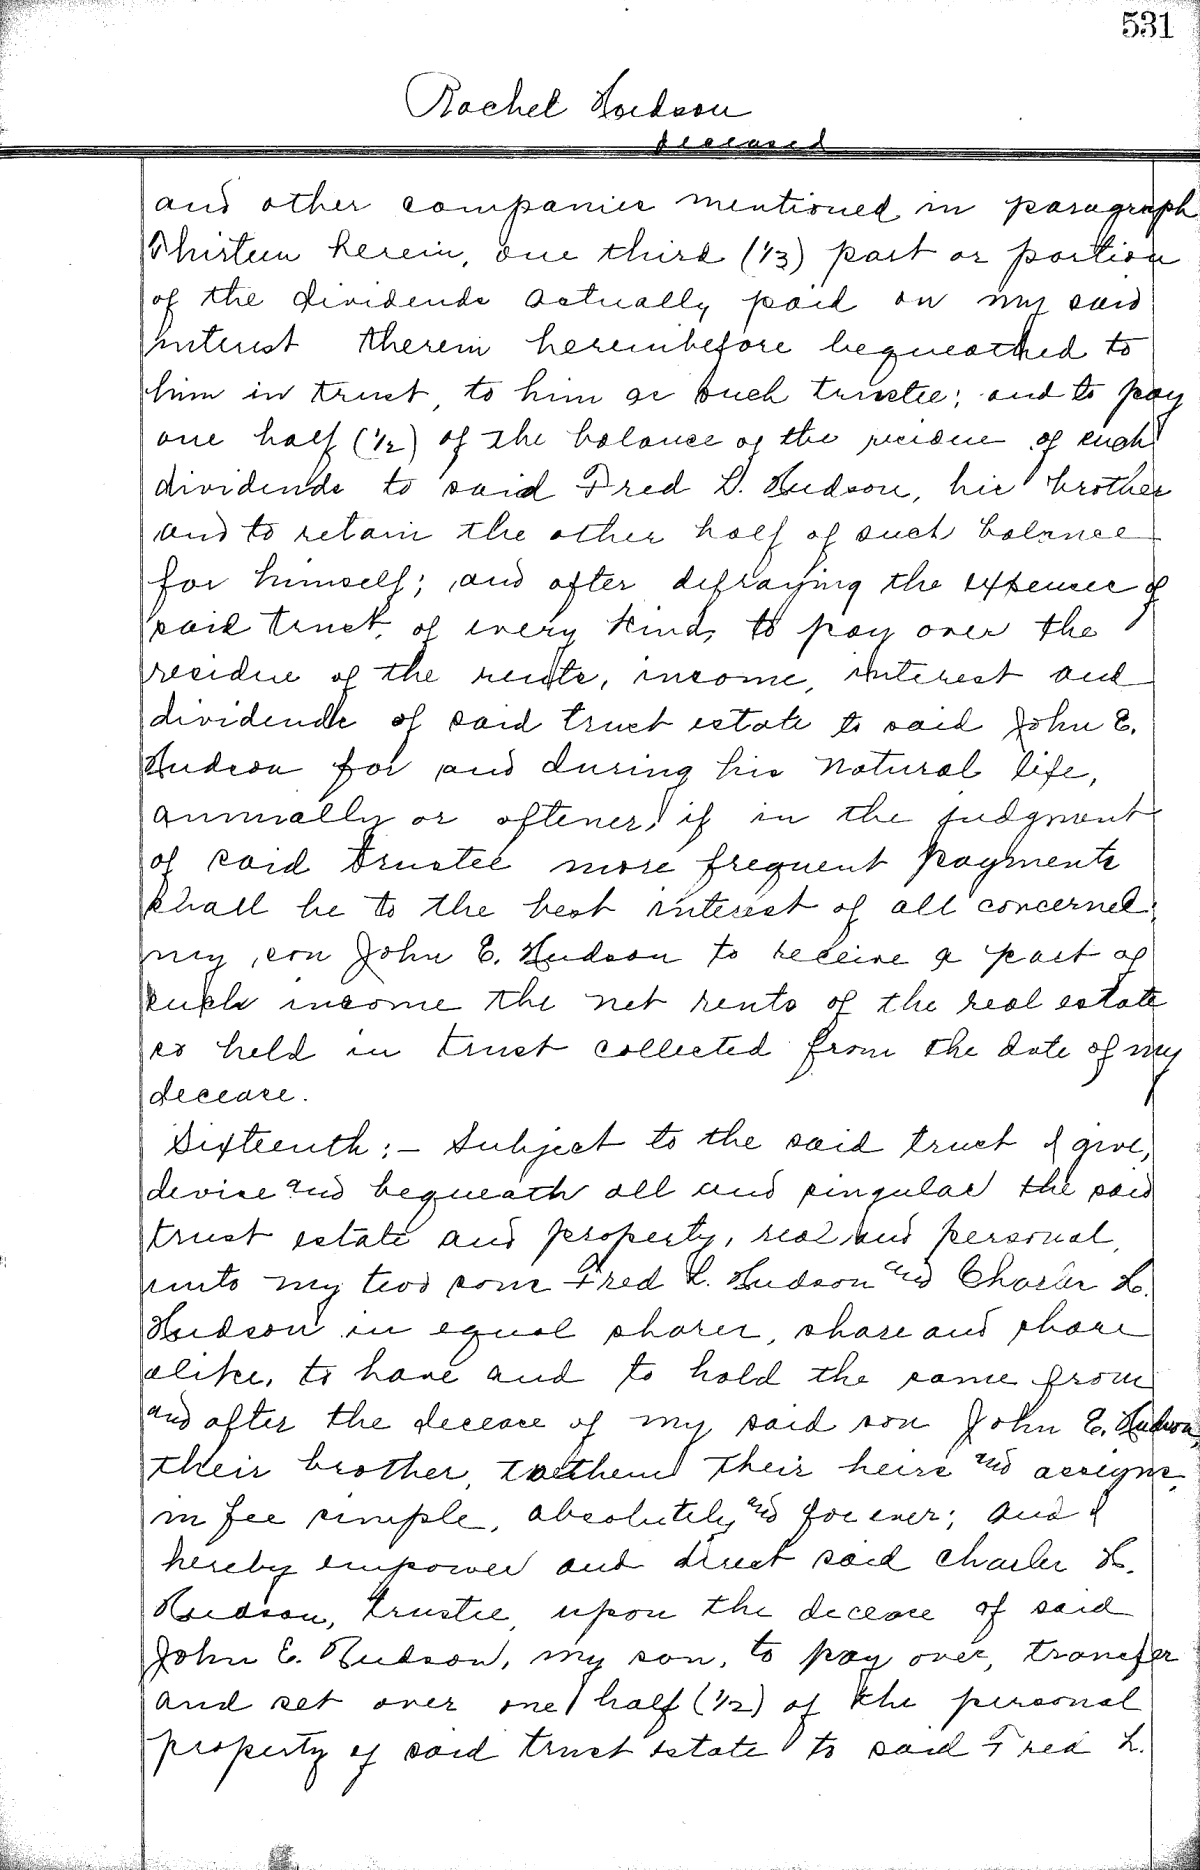 531
Rachel Hudson
deceased
and other companies mentioned in paragraph
Thirteen herein, one third (1/3) part or portion
of the dividends actually paid on my said
interest therein hereinbefore bequeathed to
him in trust, to him as such trustee; and to pay
one half (1/2) of the balance or the residue of such
dividends to said Fred L. Hudson, his brother
and to retain the other half of such balance
for himself; and after defraying the expenses of
said trust, of every kind, to pay over the
residue of the rents, income, interest and
dividends of said trust estate to said John E.
Hudson for and during his natural life,
annually or oftener, if in the judgment
of said trustee more frequent payments
shall be to the best interest of all concerned;
my son John E. Hudson to receive a part of
such income the net rents of the real estate
so held in trust collected from the date of my
decease.
Sixteenth:- Subject to the said trust I give,
devise and bequeath all and singular the said
trust estate and property, real and personal,
unto my two sons Fred L. Hudson and Charles H.
Hudson in equal shares, share and share
alike, to have and to hold the same from
and after the decease of my said son John E. Hudson,
their brother, to them their heirs and assigns,
in fee simple, absolutely and forever; and I
hereby empower and direct said Charles H.
Hudson, trustee, upon the decease of said
John E. Hudson, my son, to pay over, transfer
and set over one half (1/2) of the personal
property of said trust estate to said Fred L.